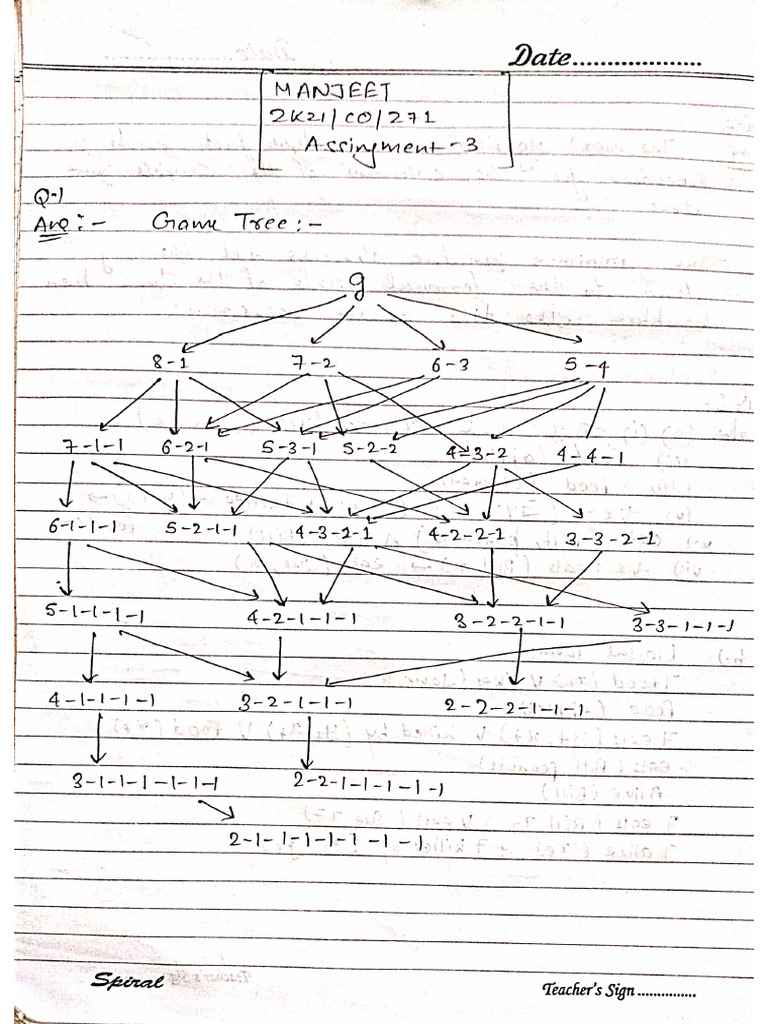 Date...................
MANJEET
2K21/CO/271
Assingment-3
Q-1
Ans:- Game Tree:-
9
8-1 7-2 6-3 5-4
7-1-1 6-2-1 5-3-1 5-2-2 4-3-2 4-4-1
6-1-1-1 5-2-1-1 4-3-2-1 4-2-2-1 3-3-2-1
5-1-1-1-1 4-2-1-1-1 3-2-2-1-1 3-3-1-1-1
4-1-1-1-1-1 3-2-1-1-1 2-2-2-1-1-1
3-1-1-1-1-1-1 2-2-1-1-1-1-1
2-1-1-1-1-1-1-1
Spiral
Teacher's Sign...............